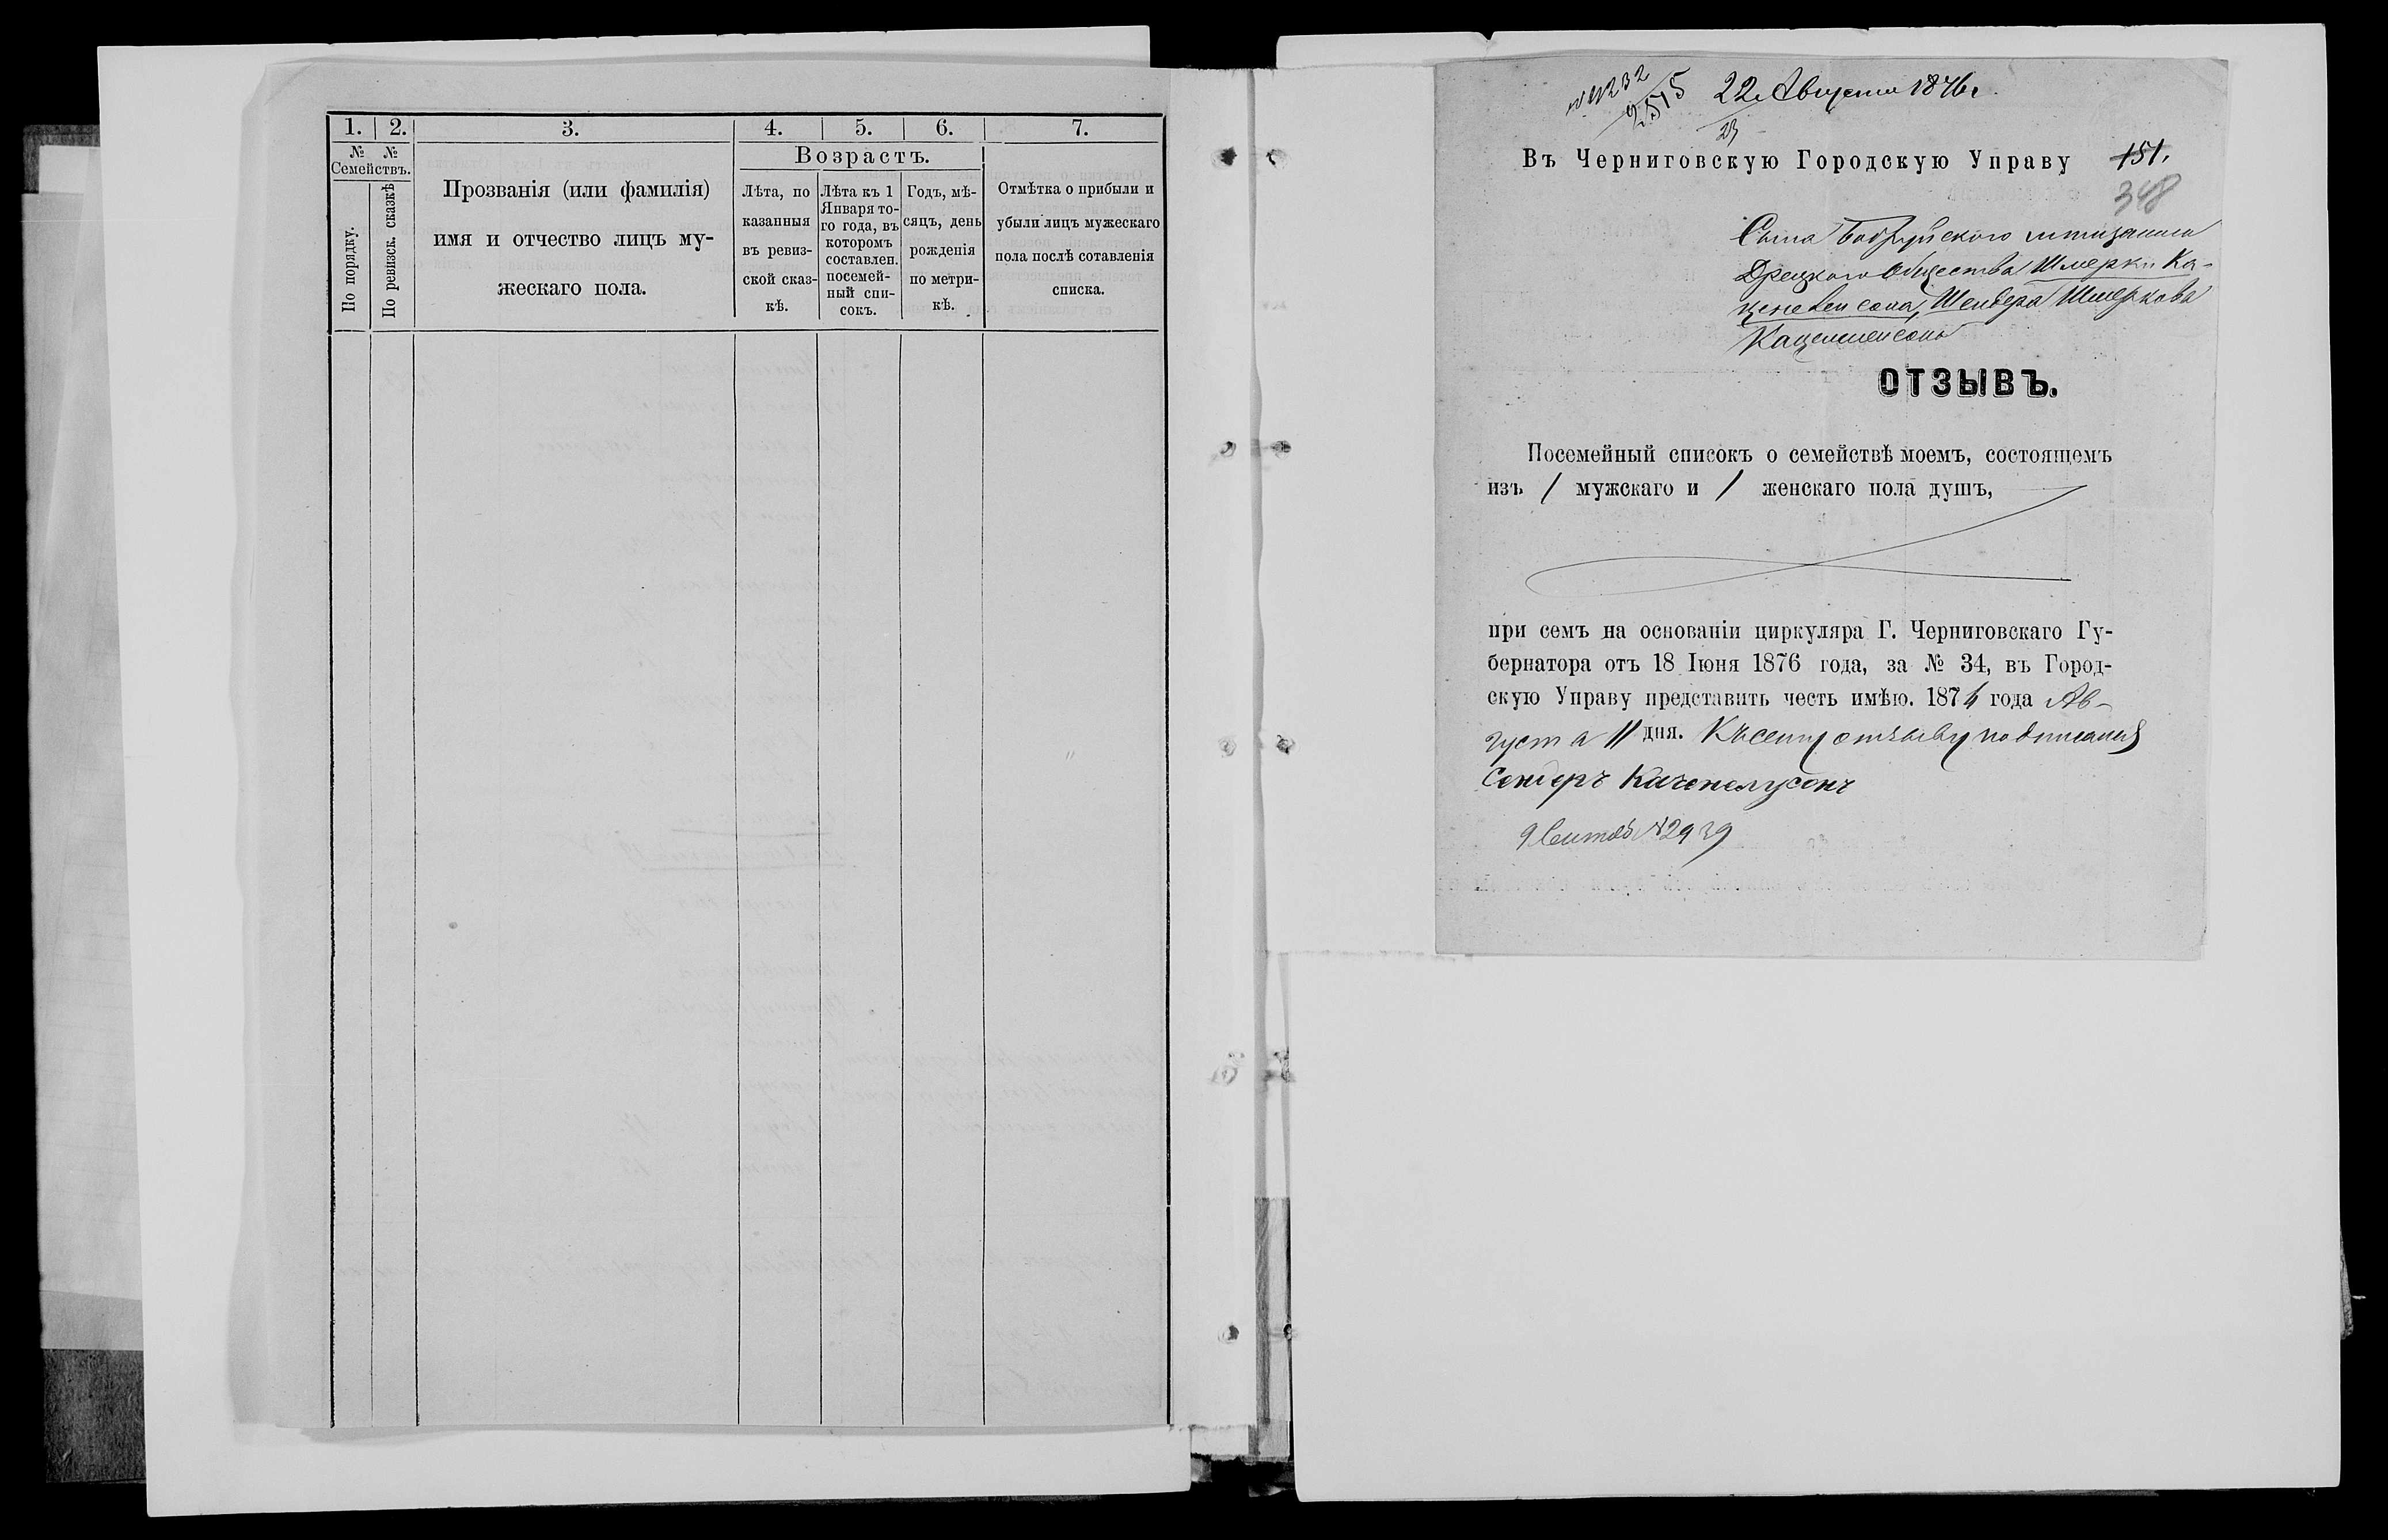 1. 2. 3. 4. 5. 6. 7.
№ №
Семействъ.
По порядку.
По ревизск. сказкѣ
Прозванія (или фамилія)
имя и отчество лицъ му-
жескаго пола.
Возрастъ.
Лѣта, по
казанныя
въ ревиз-
ской сказ-
кѣ.
Лѣта къ 1
Января то-
го года, въ
которомъ
составлен.
посемей-
ный спи-
сокъ.
Годъ, мѣ-
сяцъ, день
рожденія
по метри-
кѣ.
Отмѣтка о прибыли и
убыли лицъ мужескаго
пола послѣ сотавленія
списка.
№ 4232
2515 22 Августа 1876 г.
23
Въ Черниговскую Городскую Управу 151.
348
Сына Бобруйскаго мѣщанина
Общества Шмерки Ка-
ценеленсона, Шендера Шмеркова
Каценеленсона
ОТЗЫВЪ.
Посемейный списокъ о семействѣ моемъ, состоящемъ
изъ 1 мужскаго и 1 женскаго пола душъ,
при семъ на основаніи циркуляра Г. Черниговскаго Гу-
бернатора отъ 18 Іюня 1876 года, за № 34, въ Город-
скую Управу представить честь имѣю. 1876 года Ав-
густа 11 дня. Къ сему отзыву подписался
Сендеръ Каценелусонъ
9 Сентяб № 2939